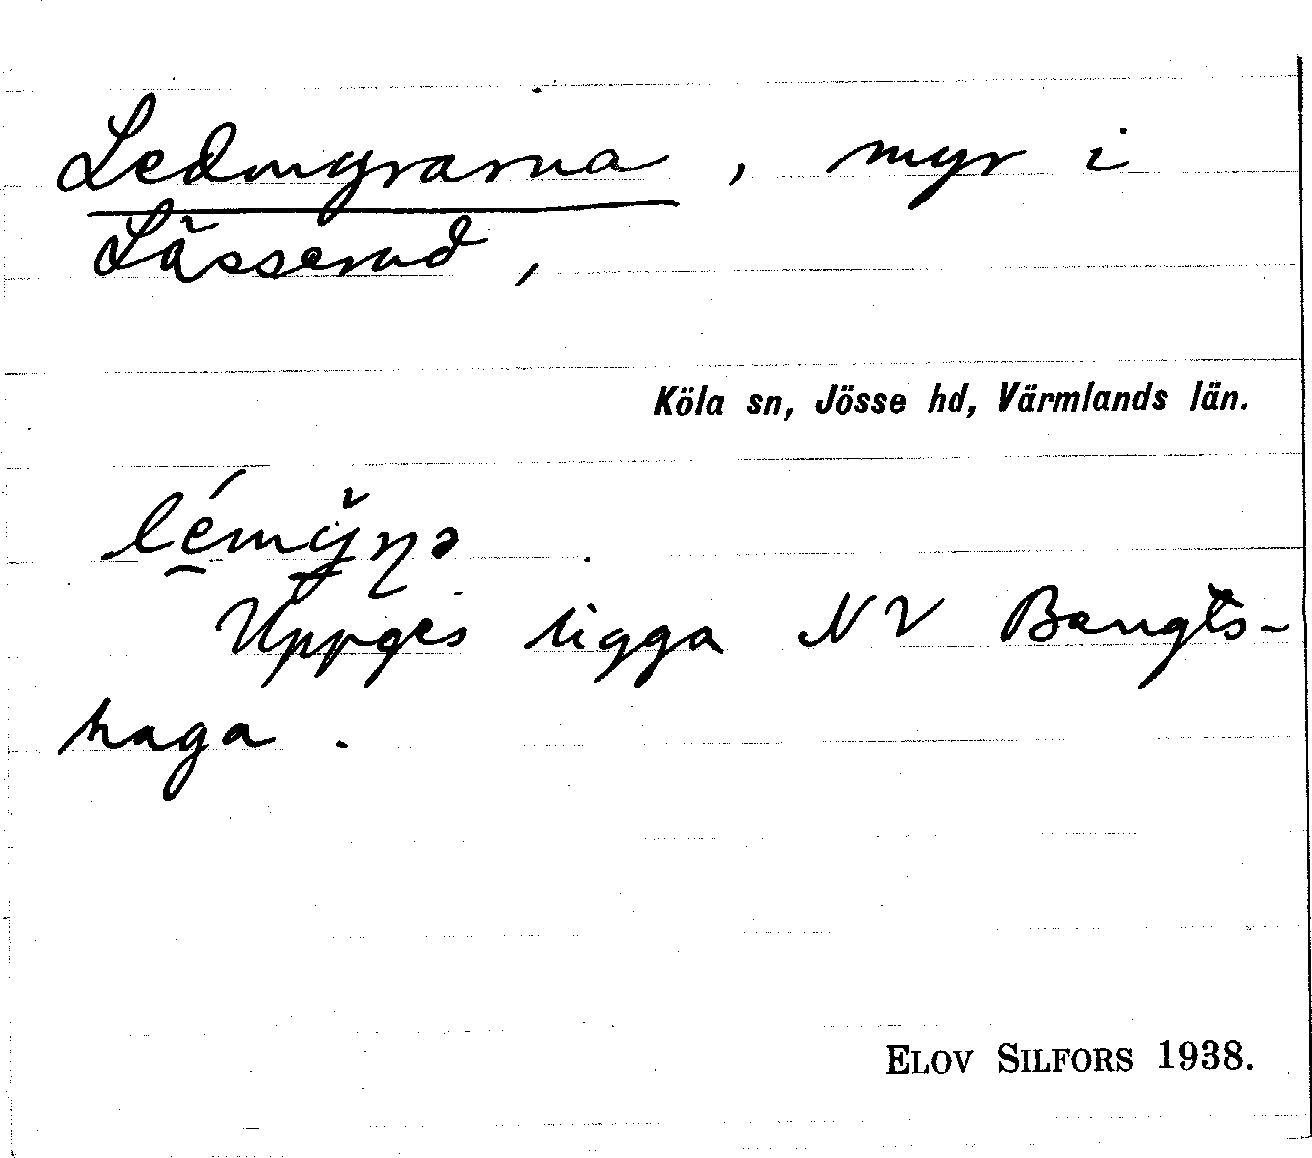 Ledmyrarna, myr i
Lässerud,
Köla sn, Jösse hd, Värmlands län.
Uppges ligga NV Bengts-
haga.
ELOV SILFORS 1938.